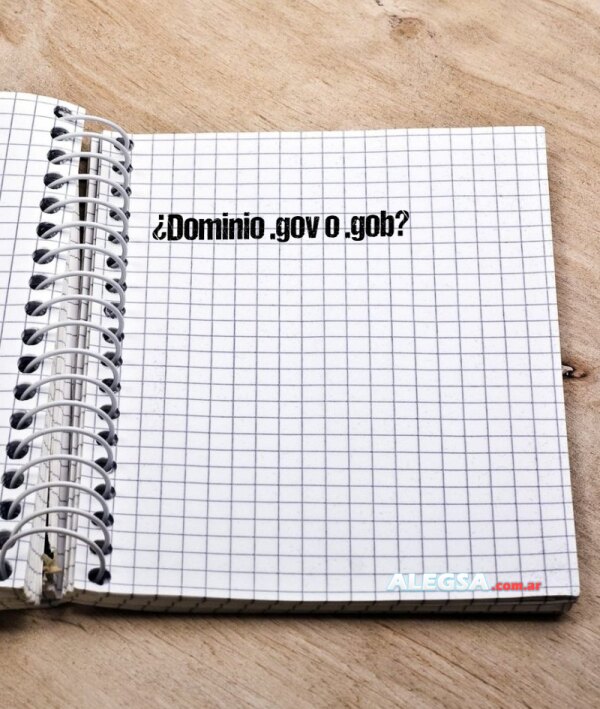 ¿Dominio .gov o .gob?
ALEGSA.com.ar